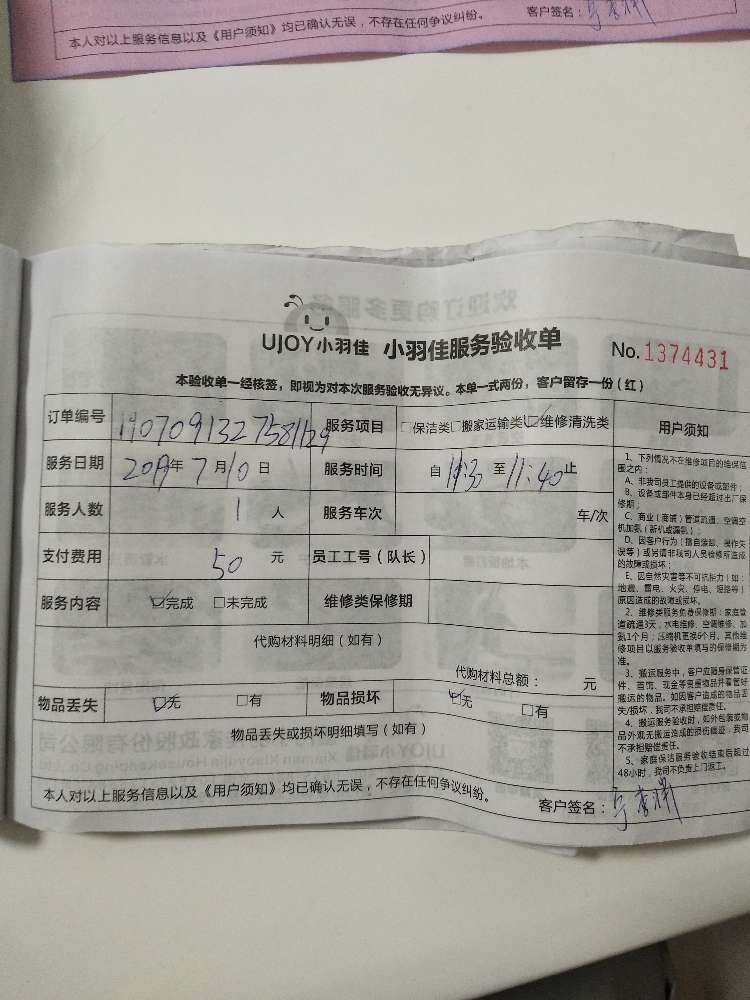 本人对以上服务信息以及《用户须知》均已确认无误，不存在任何争议纠纷。 客户签名：
UJOY小羽佳 小羽佳服务验收单 No.1374431
本验收单一经核签，即视为对本次服务验收无异议。本单一式两份，客户留存一份（红）
订单编号 1907091327581129 服务项目 □保洁类□搬家运输类☑维修清洗类
服务日期 2019年7月10日 服务时间 自11:30至11:40止
服务人数 1人 服务车次 车/次
支付费用 50元 员工工号（队长）
服务内容 ☑完成 □未完成 维修类保修期
代购材料明细（如有）
代购材料总额： 元
物品丢失 ☑无 □有 物品损坏 ☑无 □有
物品丢失或损坏明细填写（如有）
本人对以上服务信息以及《用户须知》均已确认无误，不存在任何争议纠纷。 客户签名：
用户须知
1、下列情况不在维修项目的维保范
围之内：
A、非我司员工提供的设备或部件；
B、设备或部件本身已经超过出厂保
修期；
C、商业（商铺）管道疏通、空调空
机加氨（新机或漏氨）；
D、因客户行为（擅自涂卸、操作失
误等）或另请非我司人员检修所造成
的故障或损坏；
E、因自然灾害等不可抗拒力（如：
地震、雷电、火灾、停电、短路等）
原因造成的故障或损坏。
2、维修类服务免费保修期：家庭管
道疏通3天，水电维修、空调维修、加
氨1个月；压缩机更换6个月。其他维
修项目以服务验收单填写的保修期为
准。
3、搬运服务中，客户应随身保管证
件、首饰、现金等贵重物品并看管好
搬运的物品。如因客户造成的物品丢
失/损坏，我司不承担赔偿责任。
4、搬运服务验收时，如外包装或物
品外观无搬运造成的损伤痕迹，我司
不承担赔偿责任。
5、家庭保洁服务验收结束后超过
48小时，我司不负责上门返工。